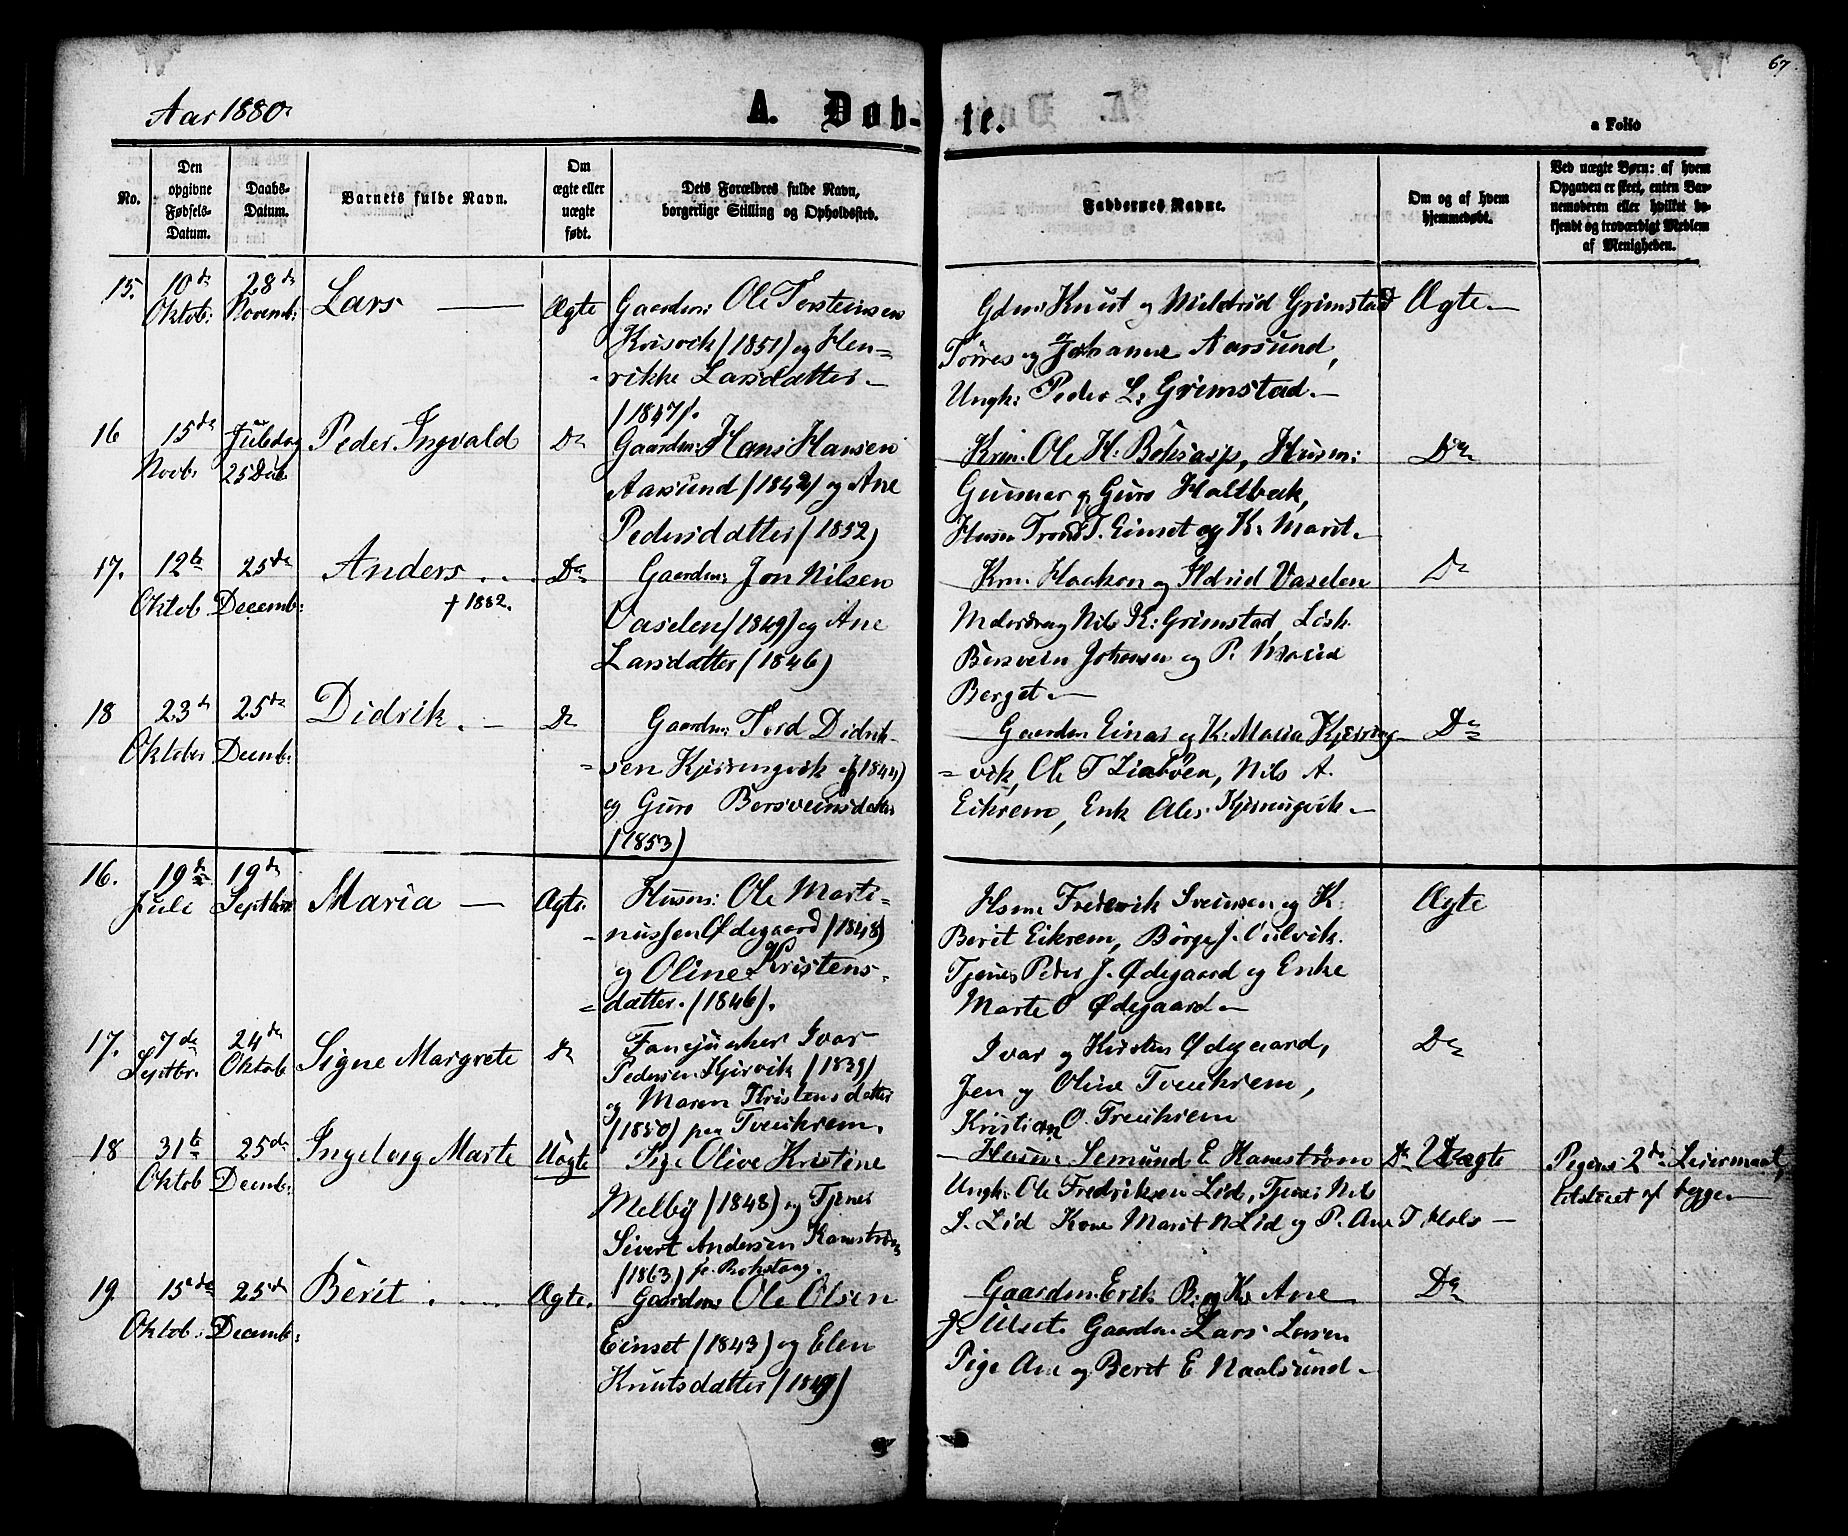 67.
Aar 1880.
A. Døb-te.
a Folio
No.
Den opgivne Fødsels-Datum.
Daabs-Datum.
Barnets fulde Navn.
Om ægte eller uægte født.
Dets Forældres fulde Navn, borgerlige Stilling og Opholdssted.
Faddernes Navne.
Om og af hvem hjemmedøbt.
Ved uægte Børn: af hvem Opgaven er skeet, enten Barnemoderen eller hvilket bekjendt og troværdigt Medlem af Menigheden.
15. 10de 28de Lars — Ægte Gaardm: Ole Torsteinsen
Oktob: Novemb: Krisvik (1851) og Hen-
rikke Larsdatter —
(1847).
Gdm: Knut og Mildrid Grimstad Ægte —
Torres og Johanne Aarsund,
Ungk: Peder L: Grimstad. —
16 15de Juledag Peder Ingvald Do Gaardm: Hans Hansen
Novb: 25 Dec. Aarsund (1842) og Ane
Pedersdatter (1852)
Ole H: Bøhasp, Husm: Do
Gunnar og Guro Holtbak,
Husm Trond T. Einset og K: Marit —
17. 12te 25de Anders . . Do Gaardm: Jon Nilsen
Oktob. Decemb: † 1882. Vaselen (1849) og Ane
Larsdatter (1846)
Haakon og Ildrid Vaselen Do
Nils K: Grimstad,
Bersvein Johnsen og P. Maria
Berget. —
18 23de 25de Didrik. — Do Gaardm: Tord Didrik-
Oktober Decemb: sen Kjøringsvik (1844)
og Guro Bersveinsdatter
(1853)
Gaardm Einar og K: Maria Kjøring- Do
vik, Ole T Liabøen, Nils A.
Eikrem, Enk Ales Kjøringvik —
16. 19de 19de Maria — Ægte. Husm: Ole Marti-
Juli Septbr nussen Ødegaard (1848)
og Oline Kristens-
datter. (1846).
Husm Frederik Sveinsen og K: Ægte
Berit Eikrem, Børge J. Culvik.
Tjener Peder J. Ødegaard og Enke
Marte O Ødegaard —
17. 7de 24de Signe Margrete Do Fanejunker Ivar
Septbr. Oktob Pedersen Hjorvik (1839)
og Maren Kristensdatter
(1850) paa Tveeikrem.
Ivar og Kirsten Ødegaard, Do
Jen og Oline Tveeikrem,
Kristian O. Tveeikrem
18 31te 25de Ingeborg Marte Uægte Pige Olive Kristine
Oktob Decemb: Melby (1848) og Tjener
Sivert Andersen Hamstrøm
(1863)
Husm Semund E Hamstrøm Do Uægte Pigens 2de Leiermaal,
Ungk: Ole Fredriksen Lid, Tjener Nils tilstaaet af begge —
S. Lid Kone Marit N Lid og P. Ane T Hols —
19 15de 25de Berit . . — Ægte. Gaardm: Ole Olsen
Oktob: Decemb: Einset (1843) og Elen
Knutsdatter (1849)
Gaardm. Erik R. og K: Ane Do
J. Ulset. Gaardm. Lars Larsen
Pige Ane og Berit E Naalsund —